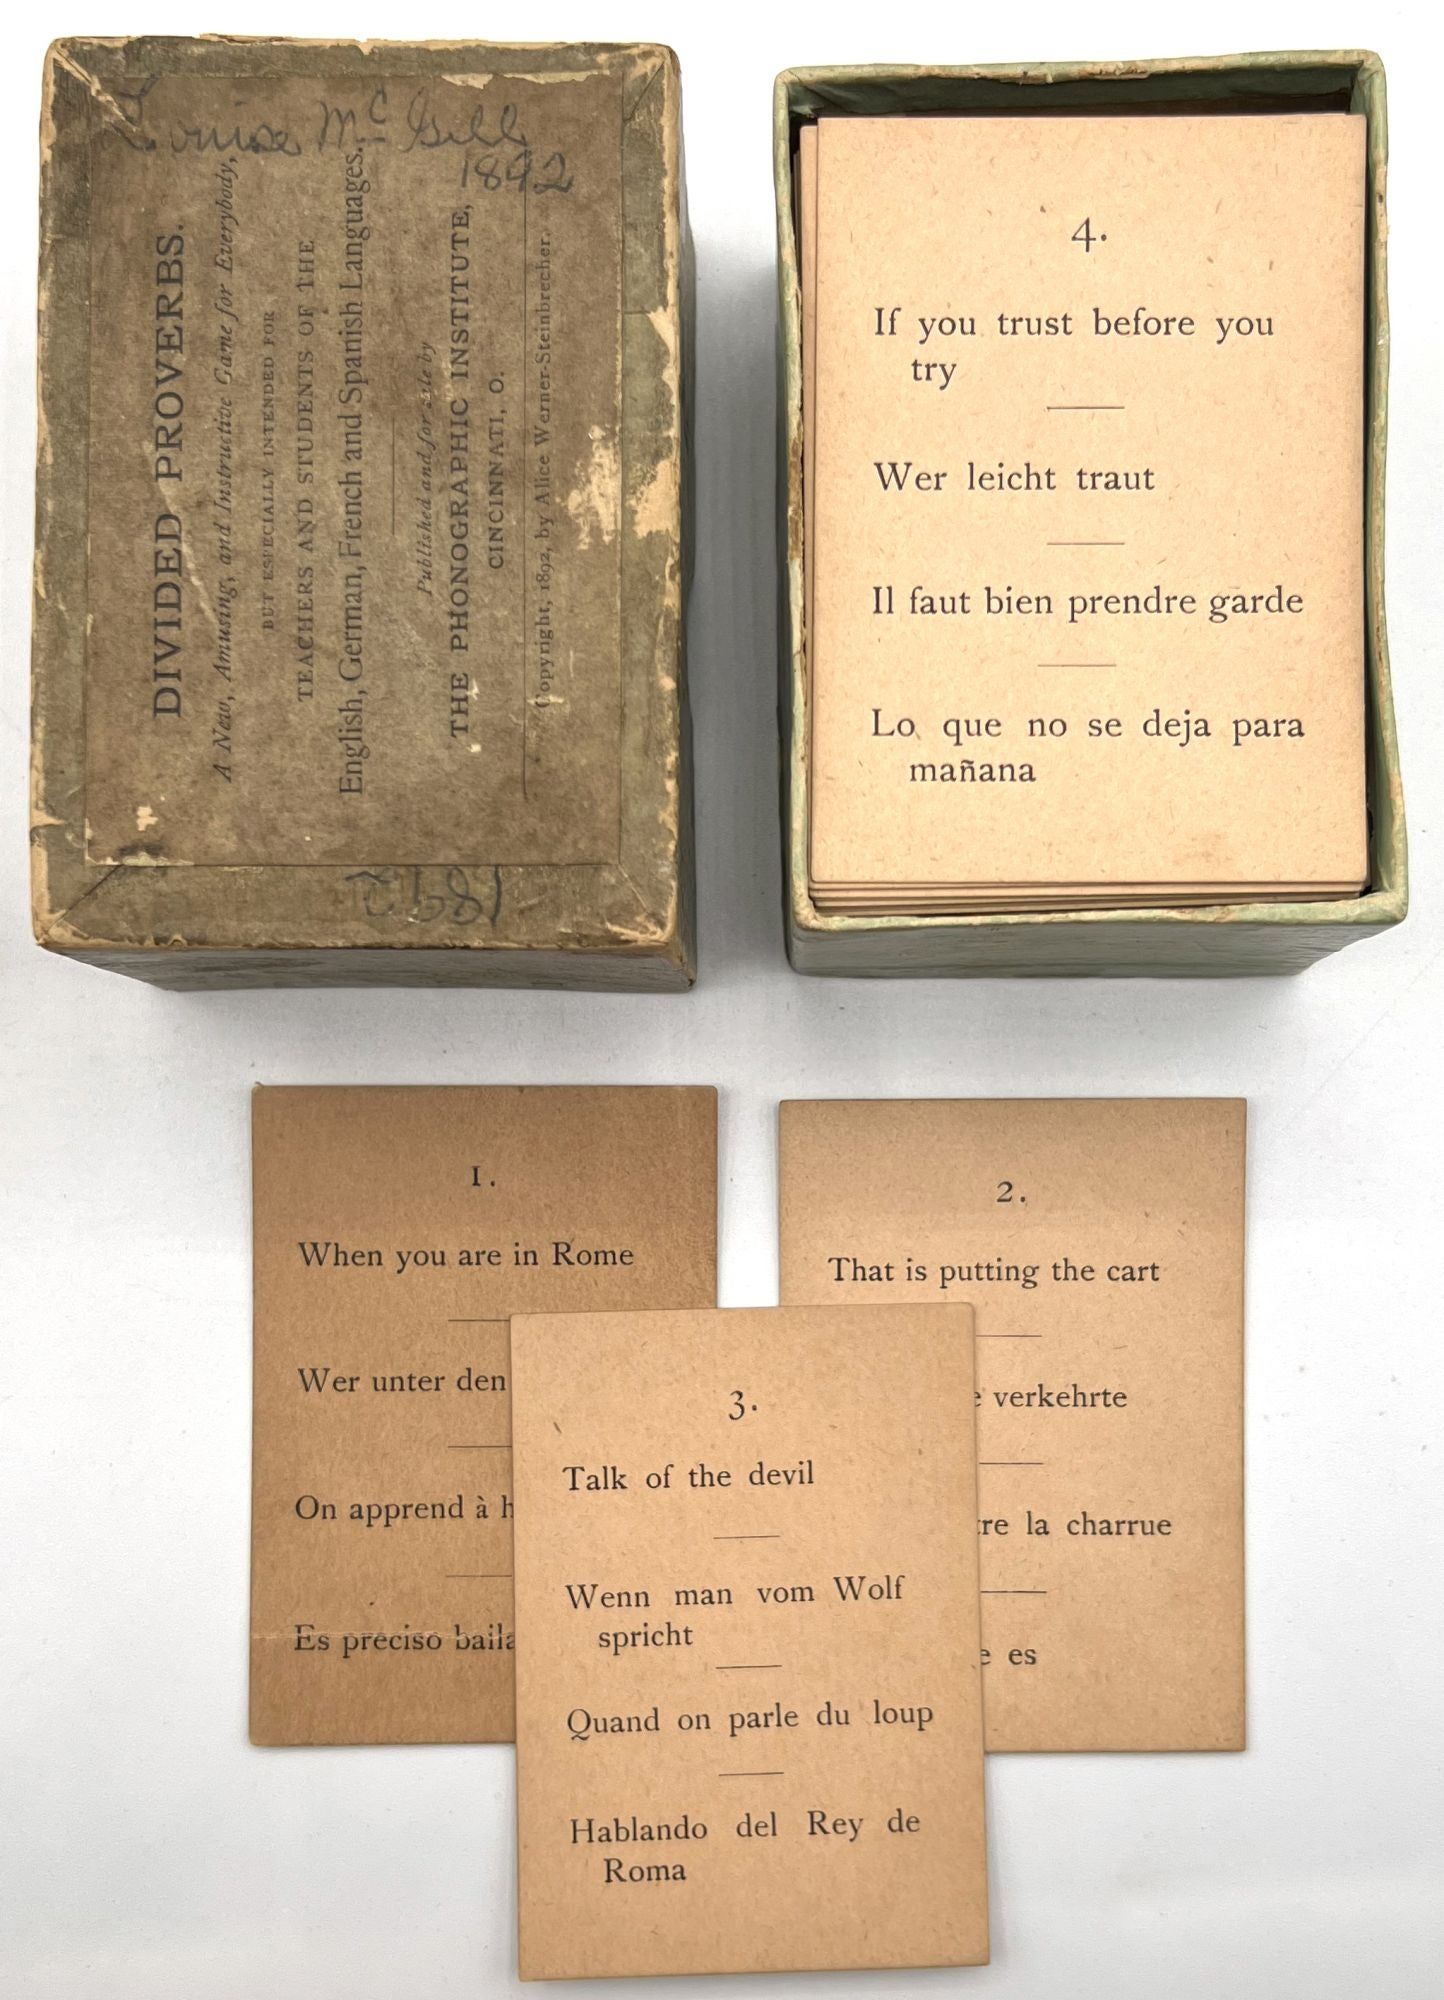 Louise McGill
1892
DIVIDED PROVERBS.
A New, Amusing, and Instructive Game for Everybody,
BUT ESPECIALLY INTENDED FOR
TEACHERS AND STUDENTS OF THE
English, German, French and Spanish Languages.
Published and for sale by
THE PHONOGRAPHIC INSTITUTE,
CINCINNATI, O.
Copyright, 1892, by Alice Werner-Steinbrecher.
1892
4.
If you trust before you
try
Wer leicht traut
Il faut bien prendre garde
Lo que no se deja para
mañana
1.
When you are in Rome
Wer unter den
On apprend à h
Es preciso baila
2.
That is putting the cart
e verkehrte
tre la charrue
e es
3.
Talk of the devil
Wenn man vom Wolf
spricht
Quand on parle du loup
Hablando del Rey de
Roma